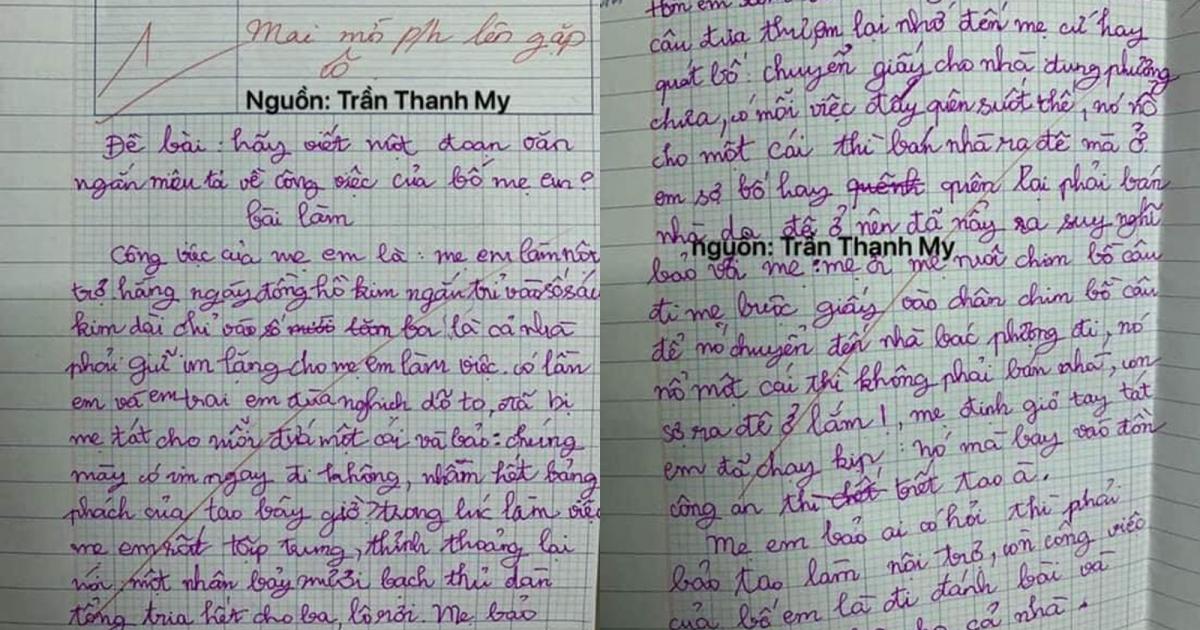 Mai mời ph lên gặp
cô
Nguồn: Trần Thanh My
Đề bài: hãy viết một đoạn văn
ngắn miêu tả về công việc của bố mẹ em?
bài làm
Công việc của mẹ em là: mẹ em làm nội
trợ hằng ngày đồng hồ kim ngắn trỉ vào số sáu
kim dài chỉ vào số ba là cả nhà
phải giữ im lặng cho mẹ em làm việc. có lần
em và em trai em đùa nghịch dỡ to, đã bị
mẹ tát cho mỗi đứa một cái và bảo: chúng
mày có im ngay đi không, nhầm hết bảng
phách của tao bây giờ? trong lúc làm việc
mẹ em rất tập trung, thỉnh thoảng lại
nói một nhân bảy mươi bạch thủ dàn
tổng tria hết cho ba, lô rơi. Mẹ bảo
câu đùa thì em lại nhớ đến mẹ cứ hay
quát bố: chuyển giấy cho nhà dung phường
chưa, có mỗi việc đấy quên suốt thế, nó nổ
cho một cái thì bán nhà ra đê mà ở
em sợ bố hay quênh quên lại phải bán
nhà da đê ở nên đã nảy ra suy nghĩ
nguồn: Trần Thanh My
bảo với mẹ: mẹ ơi mẹ nuôi chim bồ câu
đi mẹ buộc giấy vào chân chim bồ câu
để nó chuyển đến nhà bác phường đi, nó
nổ một cái thì không phải bán nhà, con
sợ ra đê ở lắm!, mẹ định giơ tay tát
em đã chạy kịp: nó mà bay vào đồn
công an thì chết trết tao à.
Mẹ em bảo ai có hỏi thì phải
bảo tao làm nội trợ, còn công việc
của bố em là đi đánh bài và
cả nhà.